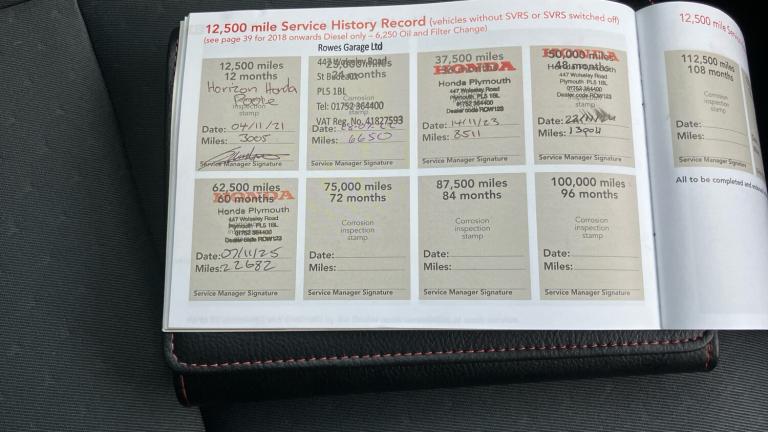 12,500 mile Service History Record (vehicles without SVRS or SVRS switched off)
(see page 39 for 2018 onwards Diesel only – 6,250 Oil and Filter Change)
12,500 miles
12 months
Horizon Honda
Poole
inspection
stamp
Date: 04/11/21
Miles: 3005
Service Manager Signature
Rowes Garage Ltd
447 Wolseley Road
24 months
PL5 1BL
Corrosion
Tel: 01752 364400
VAT Reg. No. 41827593
Date:
Miles: 6650
Service Manager Signature
37,500 miles
HONDA
Honda Plymouth
447 Wolseley Road
Plymouth PL5 1BL
01752 364400
Dealer code ROW123
Date: 14/11/23
Miles: 8511
Service Manager Signature
50,000 miles
48 months
447 Wolseley Road
Plymouth PL5 1BL
01752 364400
Dealer code ROW123
Date:
Miles: 13904
Service Manager Signature
62,500 miles
60 months
HONDA
Honda Plymouth
447 Wolseley Road
Plymouth PL5 1BL
01752 364400
Dealer code ROW123
Date: 07/11/25
Miles: 22682
Service Manager Signature
75,000 miles
72 months
Corrosion
inspection
stamp
Date:
Miles:
Service Manager Signature
87,500 miles
84 months
Corrosion
inspection
stamp
Date:
Miles:
Service Manager Signature
100,000 miles
96 months
Corrosion
inspection
stamp
Date:
Miles:
Service Manager Signature
12,500 mile
112,500 miles
108 months
Corrosion
inspection
stamp
Date:
Miles:
Service Manager Signature
All to be completed and